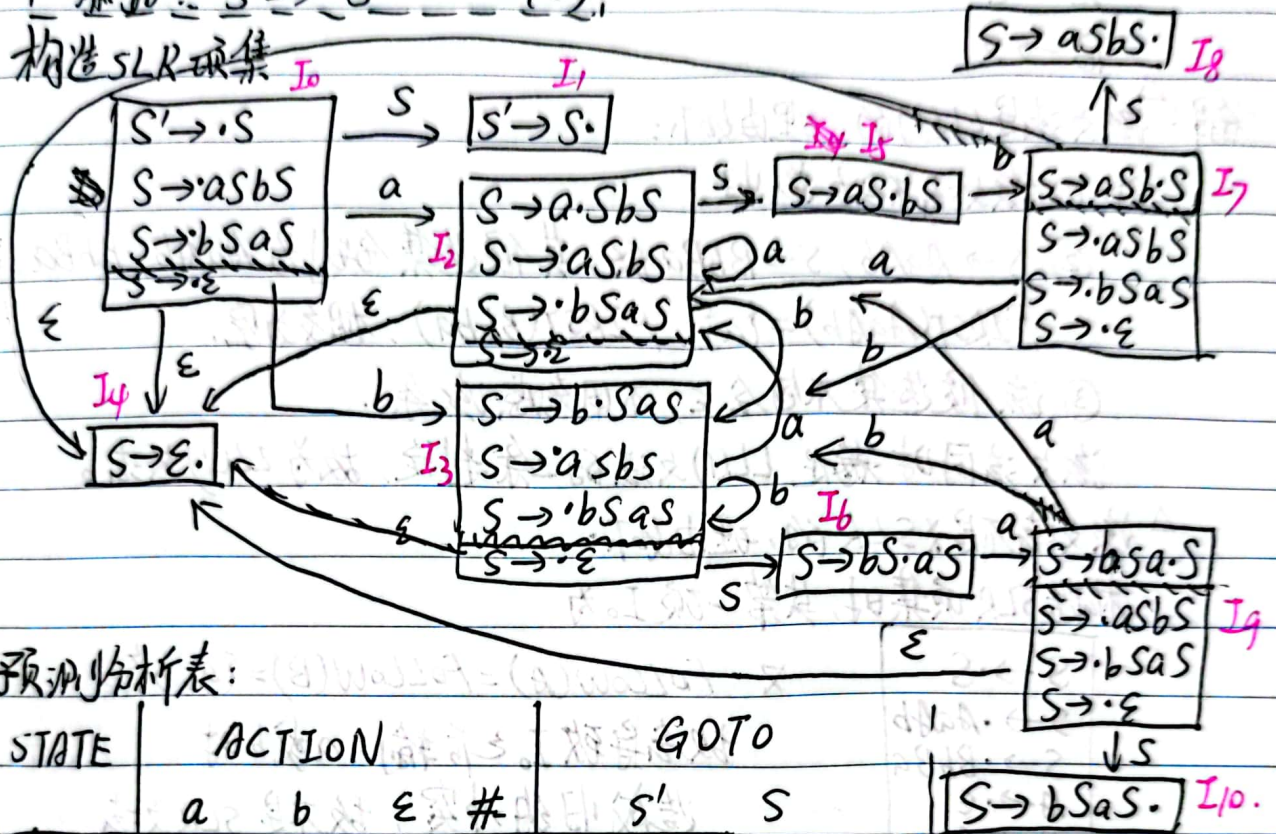 构造SLR项集
I0
S'→·S
S→·aSbS
S→·bSaS
S→·ε
S
a
ε
ε
b
I1
S'→S·
I2
S→a·SbS
S→·aSbS
S→·bSaS
S→·ε
S
a
ε
b
I5
S→aS·bS
b
I7
S→aSb·S
S→·aSbS
S→·bSaS
S→·ε
a
b
S
I8
S→aSbS·
I4
S→ε·
I3
S→b·SaS
S→·aSbS
S→·bSaS
S→·ε
a
b
ε
S
I6
S→bS·aS
a
I9
S→bSa·S
S→·aSbS
S→·bSaS
S→·ε
a
b
ε
S
I10.
S→bSaS·
预测分析表:
STATE ACTION GOTO
a b ε # S' S